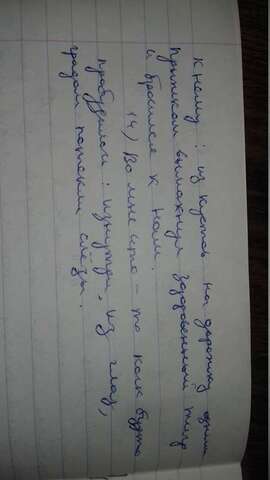 к нему: из кустов на дорожку одним
прыжком вымахнул здоровенный тигр
и бросился к нам.
14) Во мне что-то как будто
пробудилось: изнутри, из глаз,
градом потекли слёзы.